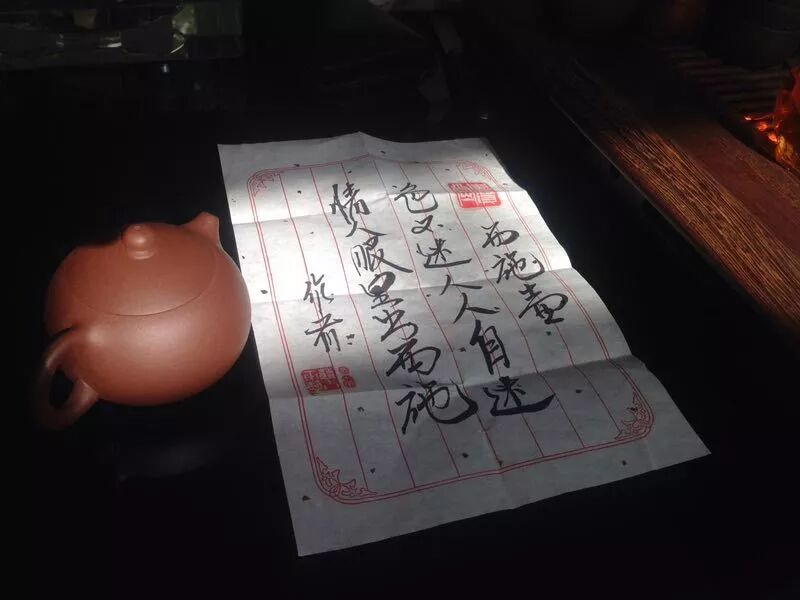 西施壶
色不迷人人自迷
情人眼里出西施
作者